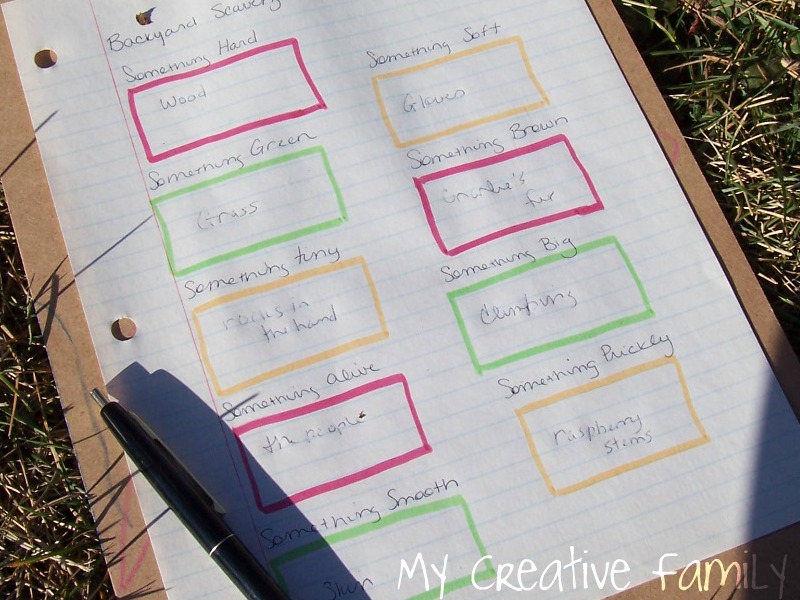 Backyard Scaveng
Something Hard
Wood
Something Soft
Gloves
Something Green
Grass
Something Brown
fur
Something tiny
rocks in
the hand
Something Big
Something alive
the people
Something Prickly
raspberry
stems
Something Smooth
My Creative Family